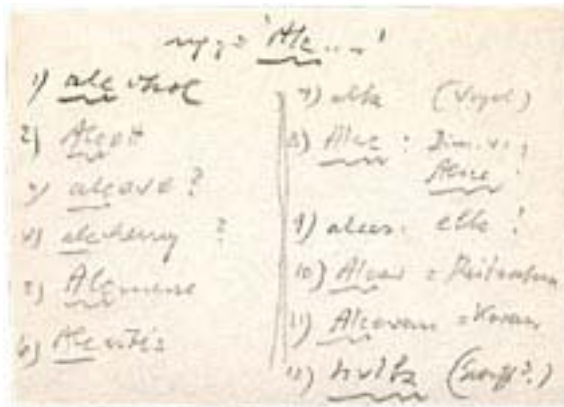 'Alc...'
1) alcohol
2) Alcott
3) alcove ?
4) alchemy ?
5) Alcmene
6) Alcestis
7) alk (Vogel)
8) Alec : Dim. v.
Alice
9) alces : elk !
10) Alcar =
11) Alcoran = Koran
12) hulk (Schiff?)